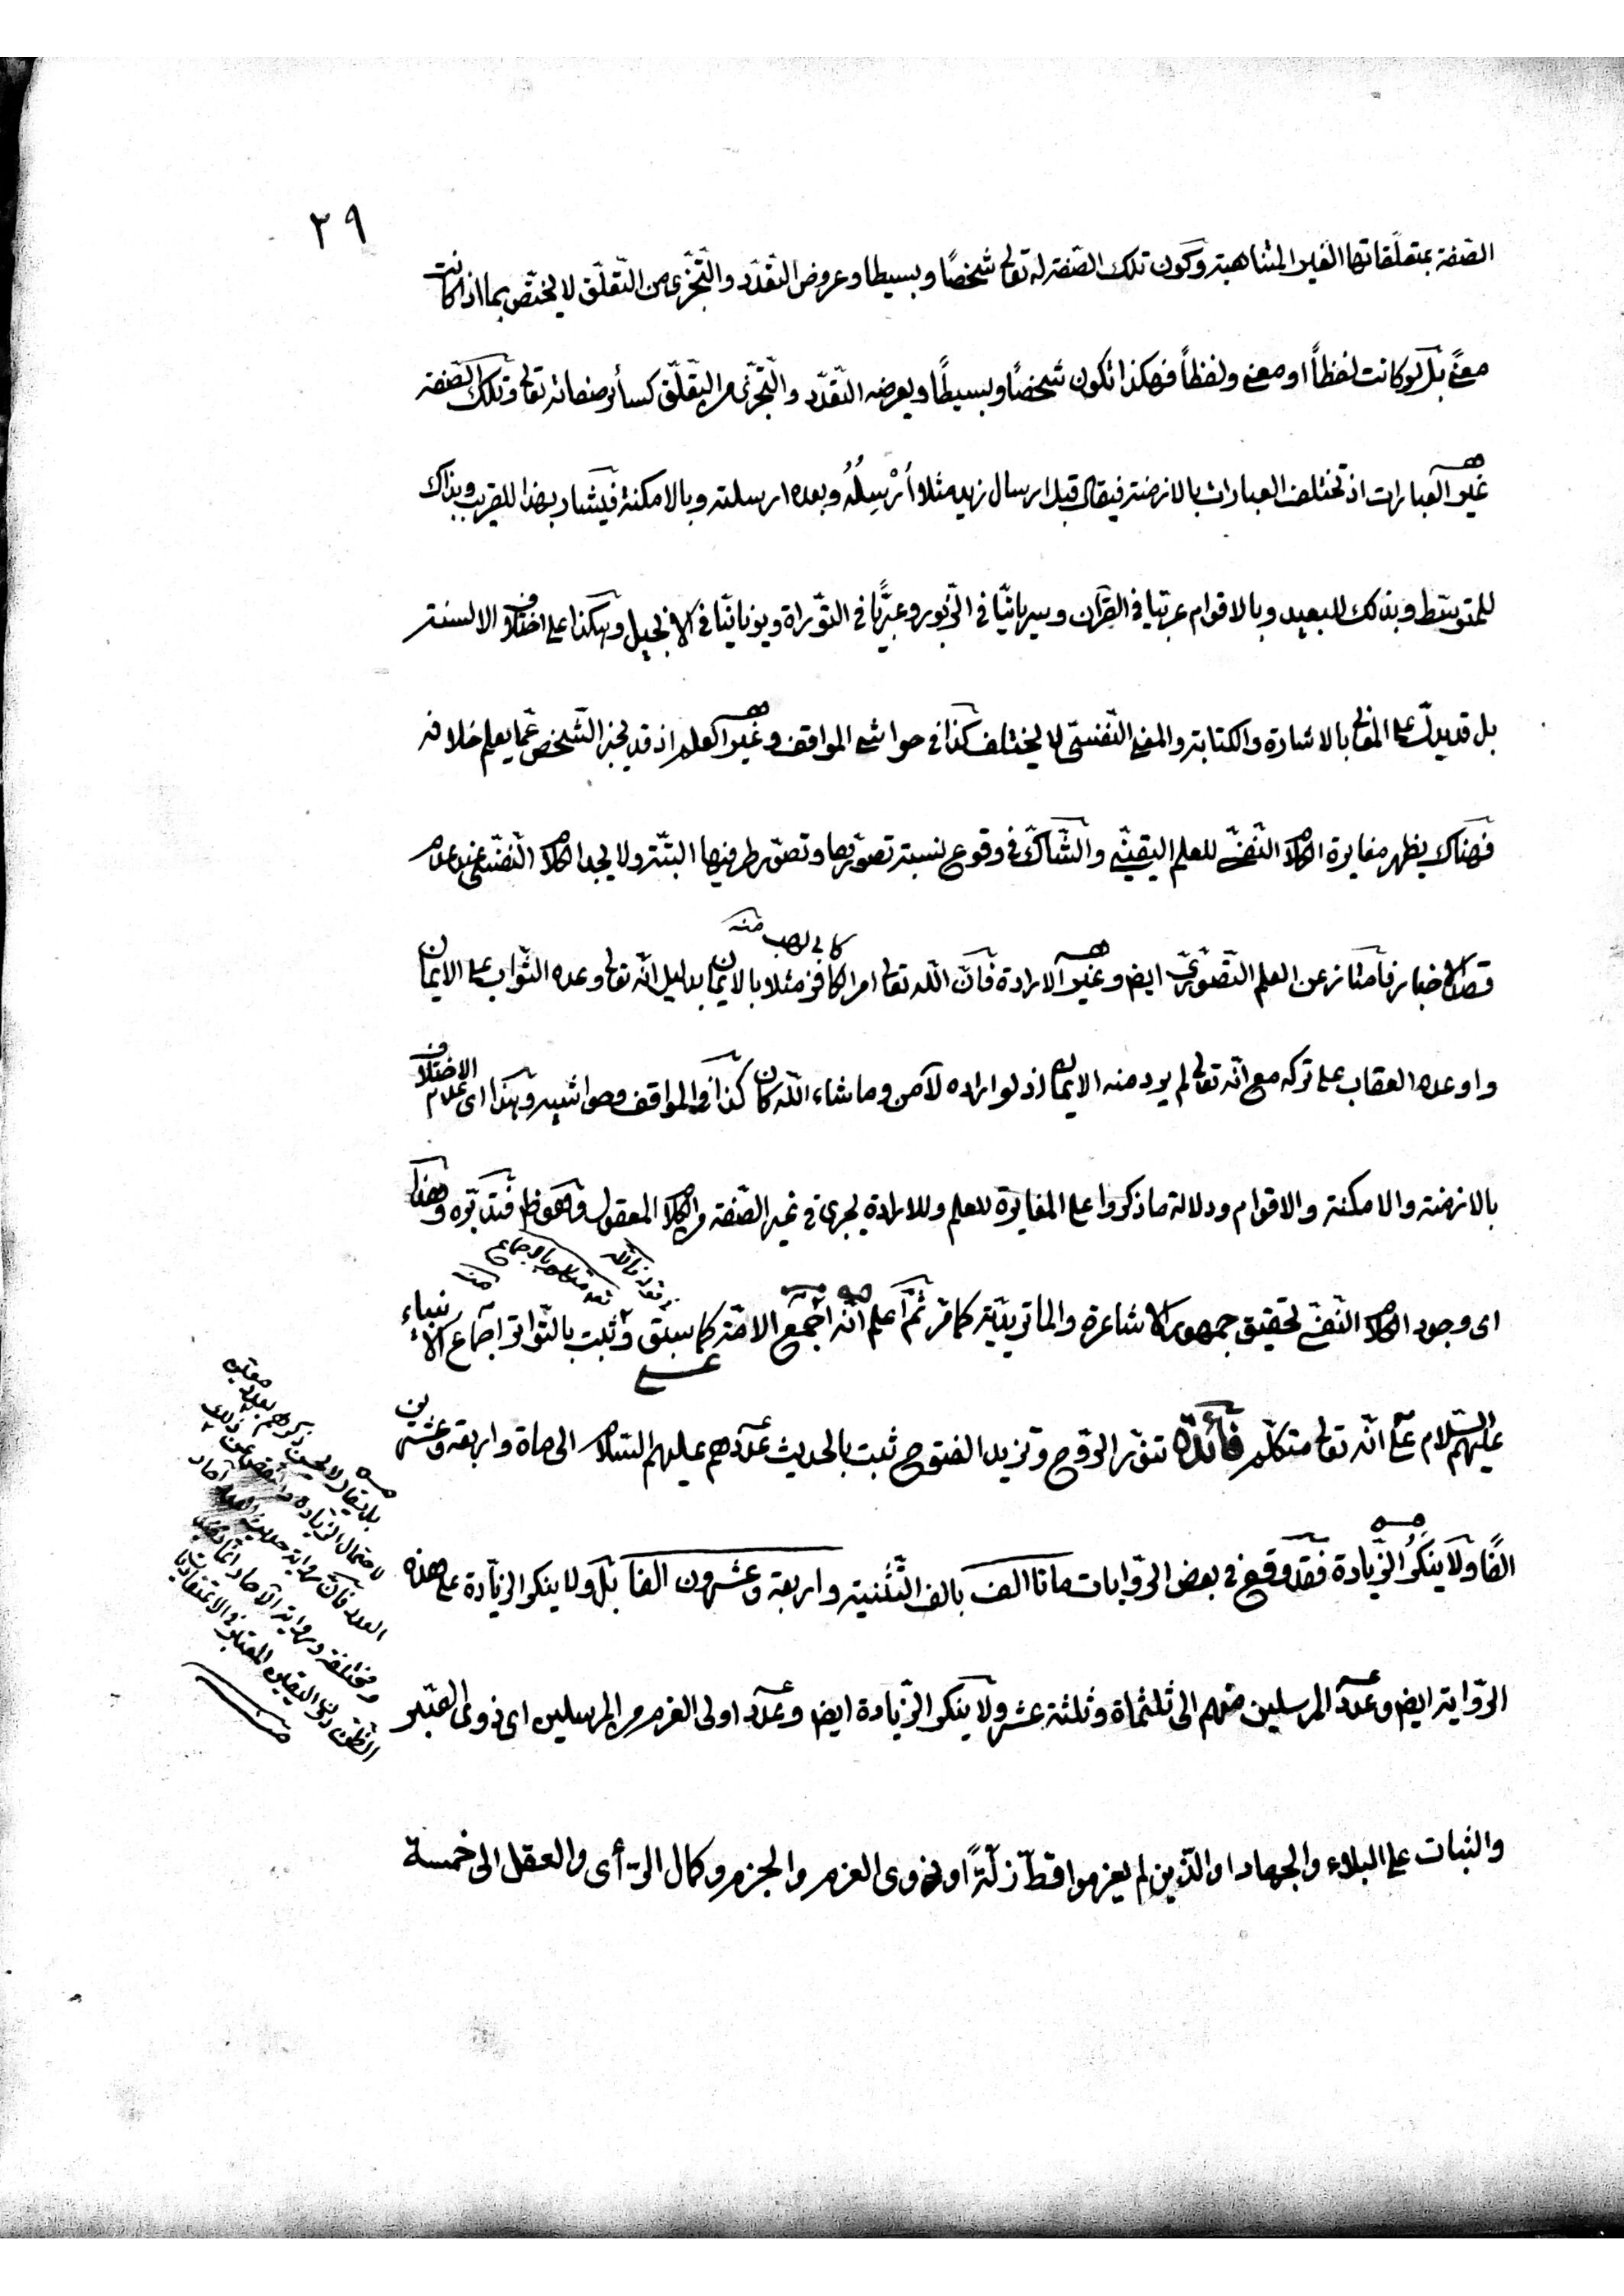 ٢٩
الصّفة بتعلّقاتها الغير المتناهية وكون تلك الصّفة له تعالى شخصًا وبسيطا وعروض التّعدّد والتّجزّى من التّعلّق لا يختصّ بما اذا كانت
معنًى بل لو كانت لفظاً او معنى ولفظاً فهكذا تكون شخصًا وبسيطًا ويعرضه التّعدّد والتّجزّى من التّعلّق كسائر صفاته تعالى وتلك الصّفة
غير العبارات اذ تختلف العبارات بالازمنة فيقال قبل ارسال زيد مثلا اُرْسِلُهُ وبعده ارسلته وبالامكنة فيشار بهذا للقريب وبذاك
للمتوسّط وبذلك للبعيد وبالاقوام عربيّا في القرآن وسريانيّا في الزّبور وعبريًّا في التّوراة ويونانيّا في الانجيل وهكذا على اختلاف الالسنة
بل قد يدلّ على المعنى بالاشارة والكتابة والمعنى النّفسىّ لا يختلف كذا في حواشى المواقف وغير العلم اذ قد يخبر الشّخص عمّا يعلم خلافه
فهناك يظهر مغايرة الكلام النّفسىّ للعلم اليقينىّ والشّاكّ في وقوع نسبة تصوّرها وتصوّر طرفيها البتّة ولا يجد الكلام النّفسىّ عند عدم
قصد الاخبار فامتاز عن العلم التّصوّرىّ ايض وغير الارادة فانّ اللّه تعالى امر الكافر مثلا بالايمان بدليل انّه تعالى وعده الثّواب على الايمان
كابى لهب منه
واوعده العقاب على تركه مع انّه تعالى لم يرد منه الايمان اذ لو اراده لآمن وما شاء اللّه كان كذا في المواقف وحواشيه وهذا اى عدم الاختلاف
بالازمنة والامكنة والاقوام ودلالة ما ذكروا على المغايرة للعلم وللارادة يجرى في غير الصّفة من الكلام المعقول وهو ظ فتدبّره وهذا
اى وجود الكلام النّفسىّ تحقيق جمهور الاشاعرة والماتريديّة كما مرّ ثمّ اعلم انّه اجمع الامّة كما سبق وثبت بالتّواتر اجماع الانبياء
عليهم السّلام على انّه تعالى متكلّم فائدة تنوّر الرّوح وتزيد الفتوح ثبت بالحديث عددهم عليهم السّلام الى مأة واربعة وعشرين
الفًا ولا ينكر الزّيادة فقد وقع في بعض الرّوايات مائتا الف بالف التّثنية واربعة وعشرون الفا بل ولا ينكر الزّيادة على هذه
الرّواية ايض وعدد المرسلين منهم الى ثلثمأة وثلثة عشر ولا ينكر الزّيادة ايض وعدد اولى العزم من المرسلين اى ذوى الصّبر
والثبات على البلاء والجهاد او الّذين لم يعزموا قطّ زلّةً او ذوى العزم والجزم وكمال الرّأى والعقل الى خمسة
بل يقال لا يحسن ذكرهم بعدد معيّن
لاحتمال الزّيادة والنّقص عن ذلك
العدد فانّ رواية حديث العدد آحاد
ومختلفة ورواية الآحاد انّما تفيد
الظّنّ دون اليقين المعتبر في الاعتقاديات
منه